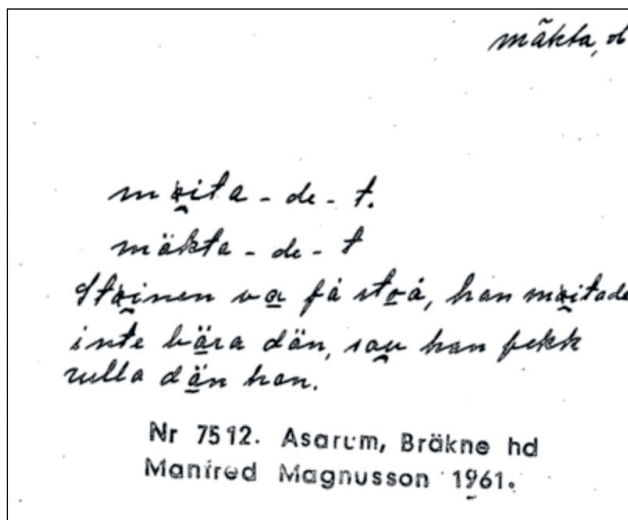 mäkta, v
møita - de - t.
mäkta - de - t
Støinen va få stoå, han møitade
inte bära dän, sau han fekk
rulla dän han.
Nr 7512. Asarum, Bräkne hd
Manfred Magnusson 1961.